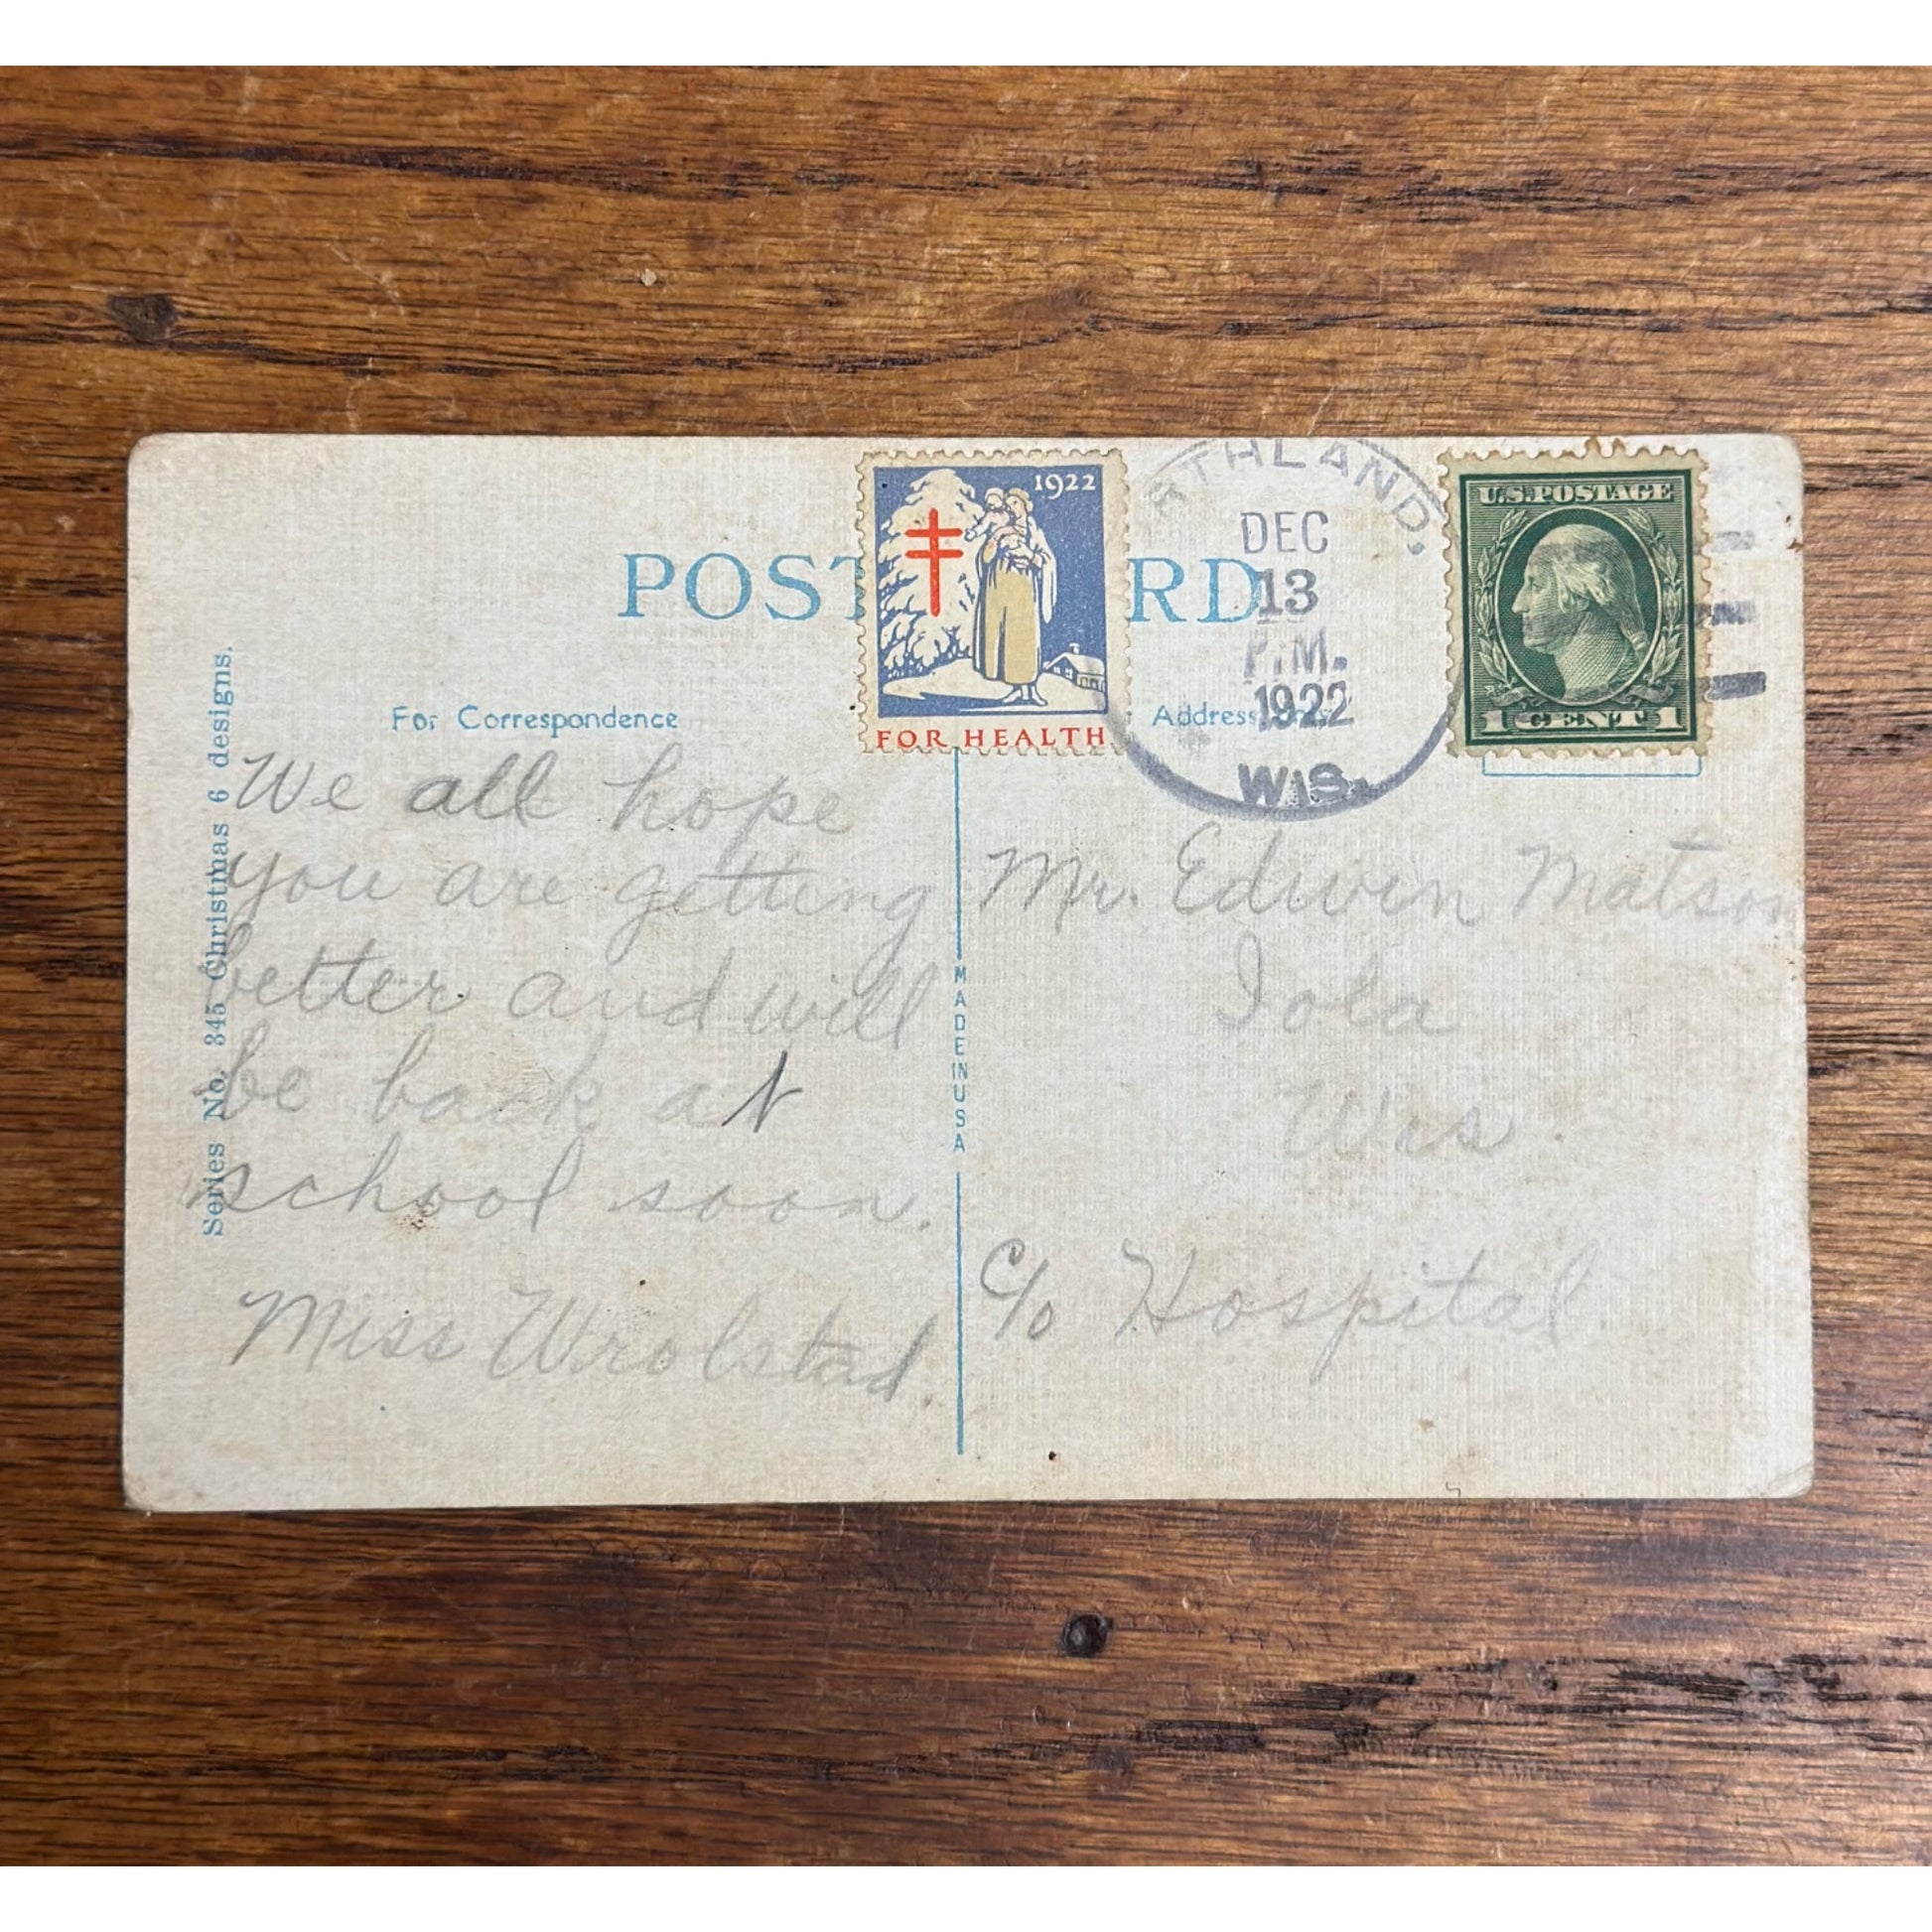 POST RD
1922
FOR HEALTH
RTHLAND,
DEC
13
P.M.
1922
WIS.
U.S.POSTAGE
1 CENT 1
For Correspondence
Address
Series No. 345 Christmas 6 designs.
We all hope
you are getting
better and will
be back at
school soon.
Miss Wrolstad.
MADE IN USA
Mr. Edwin Matson
Iola
Wis.
c/o Hospital